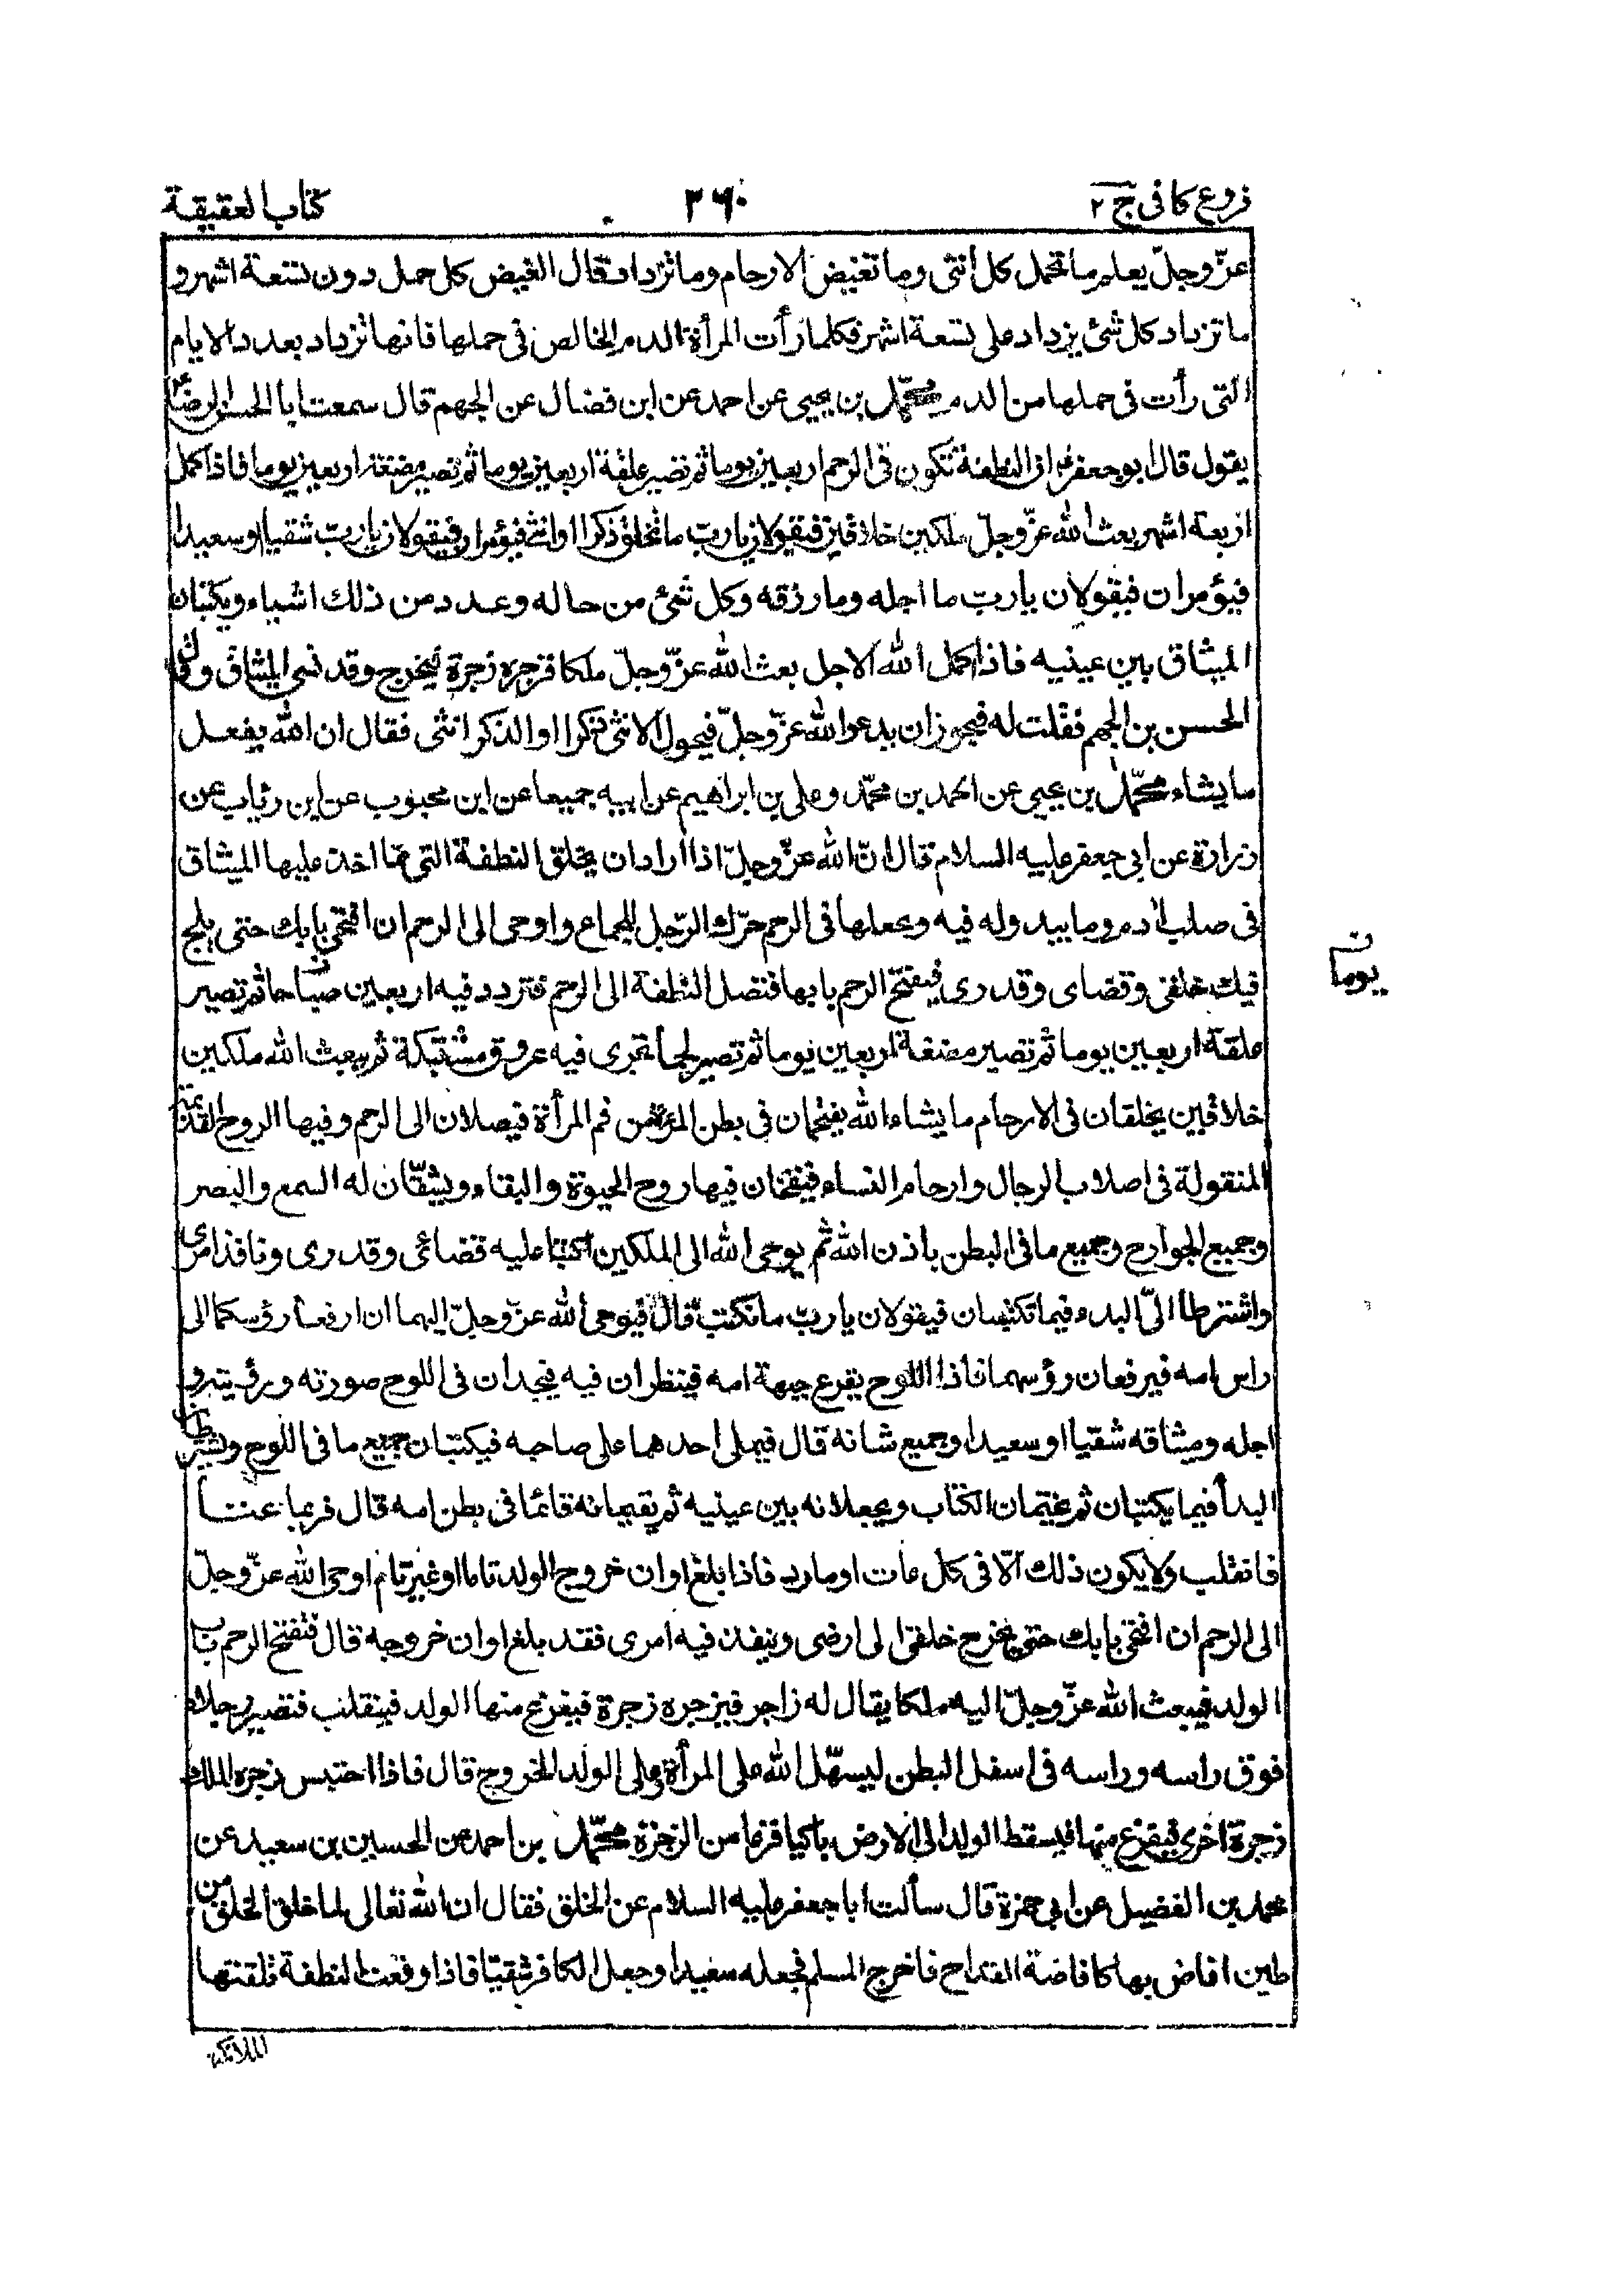 فروع كافى ج ٢
٣٦٠
كتاب العقيقة
عزّ وجلّ يعلم ما تحمل كل أنثى وما تغيض الارحام وما تزداد قال الغيض كل حمل دون تسعة اشهر و
ما تزداد كل شئ يزداد على تسعة اشهر فكلما رأت المرأة الدم الخالص فى حملها فانها تزداد بعدد الايام
التى رأت فى حملها من الدم محمّد بن يحيى عن احمد عن ابن فضال عن الجهم قال سمعت ابا الحسن الرضا ع
يقول قال ابو جعفر ع ان النطفة تكون فى الرحم اربعين يوما ثم تصير علقة اربعين يوما ثم تصير مضغة اربعين يوما فاذا كمل
اربعة اشهر بعث الله عزّ وجلّ ملكين خلاقين فيقولان يا ربّ ما نخلق ذكرا او انثى فيؤمران فيقولان يا ربّ شقيا او سعيدا
فيؤمران فيقولان يا ربّ ما اجله وما رزقه وكل شئ من حاله وعدد من ذلك اشياء ويكتبان
الميثاق بين عينيه فاذا كمل الله الاجل بعث الله عزّ وجلّ ملكا فزجره زجرة فيخرج وقد نسى الميثاق وقال
الحسن بن الجهم فقلت له فيجوز ان يدعوا الله عزّ وجلّ فيحول الانثى ذكرا او الذكر انثى فقال ان الله يفعل
ما يشاء محمّد بن يحيى عن احمد بن محمّد وعلى بن ابراهيم عن ابيه جميعا عن ابن محبوب عن ابن رئاب عن
زرارة عن ابى جعفر عليه السلام قال انّ الله عزّ وجلّ اذا اراد ان يخلق النطفة التى مما اخذ عليها الميثاق
فى صلب ادم وما يبد وله فيه ويجعلها فى الرحم حرّك الرّجل للجماع واوحى الى الرحم ان افتحى بابك حتى يلج
فيك خلقى وقضاى وقدرى فيفتح الرحم بابها فتصل النطفة الى الرحم فتردد فيه اربعين صباحا ثم تصير
يوما ن
علقة اربعين يوما ثم تصير مضغة اربعين يوما ثم تصير لحما تجرى فيه عروق مشتبكة ثم يبعث الله ملكين
خلاقين يخلقان فى الارحام ما يشاء الله يقتحمان فى بطن المرءة من فم المرأة فيصلان الى الرحم وفيها الروح القديمة
المنقولة فى اصلاب الرجال وارحام النساء فينفخان فيها روح الحيوة والبقاء ويشقّان له السمع والبصر
وجميع الجوارح وجميع ما فى البطن باذن الله ثم يوحى الله الى الملكين اكتبا عليه قضائى وقدرى ونافذ امرى
واشترطا الىّ البدء فيما تكتبان فيقولان يا ربّ ما نكتب قال فيوحى الله عزّ وجلّ اليهما ان ارفعا رؤسكما الى
راس امه فيرفعان رؤسهما فاذا اللوح يقرع جبهة امه فينظران فيه فيجدان فى اللوح صورته ورؤيته و
اجله وميثاقه شقيّا او سعيدا وجميع شانه قال فيملى احدهما على صاحبه فيكتبان جميع ما فى اللوح ويشترطان
البدأ فيما يكتبان ثم يختمان الكتاب ويجعلانه بين عينيه ثم يقيمانه قائما فى بطن امه قال فربما عتا
فانقلب ولا يكون ذلك الّا فى كل عات او مارد فاذا بلغ اوان خروج الولد تاما او غير تام اوحى الله عزّ وجلّ
الى الرحم ان افتحى بابك حتى يخرج خلقى الى ارضى وينفذ فيه امرى فقد بلغ اوان خروجه قال فتفتح الرحم باب
الولد فيبعث الله عزّ وجلّ اليه ملكا يقال له زاجر فيزجره زجرة فيفزع منها الولد فينقلب فتصير رجلاه
فوق راسه وراسه فى اسفل البطن ليسهّل الله على المرأة وعلى الولد الخروج قال فاذا احتبس زجره الملك
زجرة اخرى فيفزع منها فيسقط الولد الى الارض باكيا فزعا من الزجرة محمّد بن احمد عن الحسين بن سعيد عن
محمد بن الفضيل عن ابى حمزة قال سألت ابا جعفر عليه السلام عن الخلق فقال ان الله تعالى لما خلق الخلق من
طين افاض بها كافاضة القداح فاخرج المسلم فجعله سعيدا وجعل الكافر شقيّا فاذا وقعت النطفة تلقتها
الملائكة